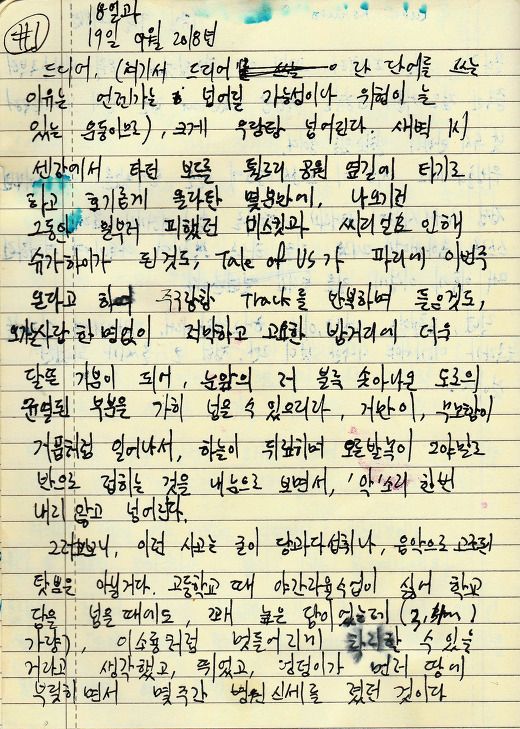 #1
18일과
19일 9월 2018년
드디어, (여기서 드디어 라 단어를 쓰는
이유는 언젠가는 넘어질 가능성이나 위험이 늘
있는 운동이므로), 크게 우당탕 넘어진다. 새벽 1시
센강에서 타던 보드를 튈르리 공원 옆길에 타기로
하고 호기롭게 올라탄 몇분만에,
그동안 일부러 피했던 믹스 과 씨리얼로 인해
슈가하이가 된것도, Tale of US 가 파리에 이번주
온다고 하여 주구장창 Track을 반복하며 들은것도,
오가는사람 한명없이 적막하고 고요한 밤거리에 더욱
달뜬 기분이 되어, 눈앞의 불룩 솟아나온 도로의
균열된 부분을 가히 넘을 수 있으리라, 거만이, 무모함이
거품처럼 일어나서, 하늘이 뒤로하며 오른발목이 모양대로
반으로 접히는 것을 내눈으로 보면서, '악'소리 한번
내지 않고 넘어진다.
그러고보니, 이런 사고는 굳이 당과다섭취나, 음악으로 고조된
탓뿐은 아닐거다. 고등학교 때 야간자율수업이 싫어 학교
담을 넘을 때에도, 꽤 높은 담이었는데 (
가량), 이소룡처럼 멋들어지게 착지할 수 있을
거라고 생각했고, 뛰었고, 엉덩이가 먼저 땅에
부딪히면서 몇주간 병원신세를 졌던 것이다